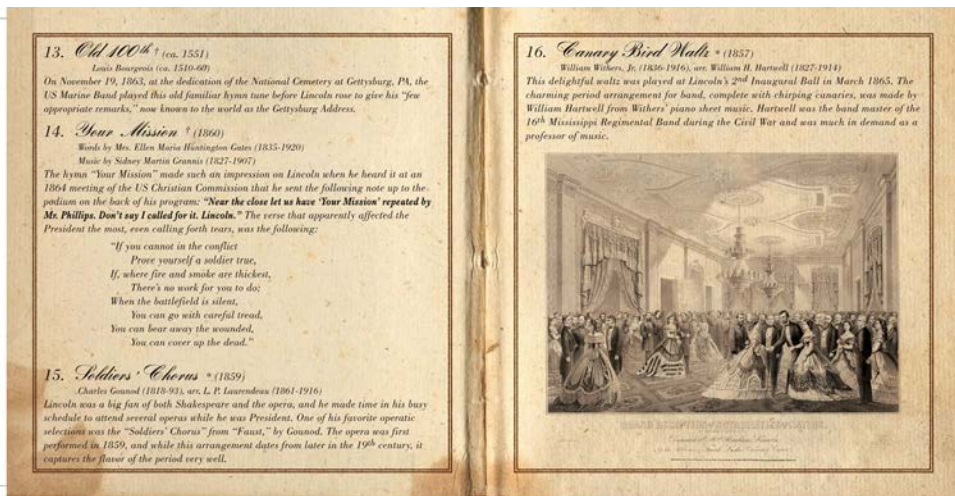 13. Old 100th † (ca. 1551)
Louis Bourgeois (ca. 1510-60)
On November 19, 1863, at the dedication of the National Cemetery at Gettysburg, PA, the
US Marine Band played this old familiar hymn tune before Lincoln rose to give his "few
appropriate remarks," now known to the world as the Gettysburg Address.
14. Your Mission † (1860)
Words by Mrs. Ellen Maria Huntington Gates (1835-1920)
Music by Sidney Martin Grannis (1827-1907)
The hymn "Your Mission" made such an impression on Lincoln when he heard it at an
1864 meeting of the US Christian Commission that he sent the following note up to the
podium on the back of his program: "Near the close let us have 'Your Mission' repeated by
Mr. Phillips. Don't say I called for it. Lincoln." The verse that apparently affected the
President the most, even calling forth tears, was the following:
"If you cannot in the conflict
Prove yourself a soldier true,
If, where fire and smoke are thickest,
There's no work for you to do;
When the battlefield is silent,
You can go with careful tread,
You can bear away the wounded,
You can cover up the dead."
15. Soldiers' Chorus * (1859)
Charles Gounod (1818-93), arr. L. P. Laurendeau (1861-1916)
Lincoln was a big fan of both Shakespeare and the opera, and he made time in his busy
schedule to attend several operas while he was President. One of his favorite operatic
selections was the "Soldiers' Chorus" from "Faust," by Gounod. The opera was first
performed in 1859, and while this arrangement dates from later in the 19th century, it
captures the flavor of the period very well.
16. Canary Bird Waltz * (1857)
William Withers, Jr. (1836-1916), arr. William H. Hartwell (1827-1914)
This delightful waltz was played at Lincoln's 2nd Inaugural Ball in March 1865. The
charming period arrangement for band, complete with chirping canaries, was made by
William Hartwell from Withers' piano sheet music. Hartwell was the band master of the
16th Mississippi Regimental Band during the Civil War and was much in demand as a
professor of music.